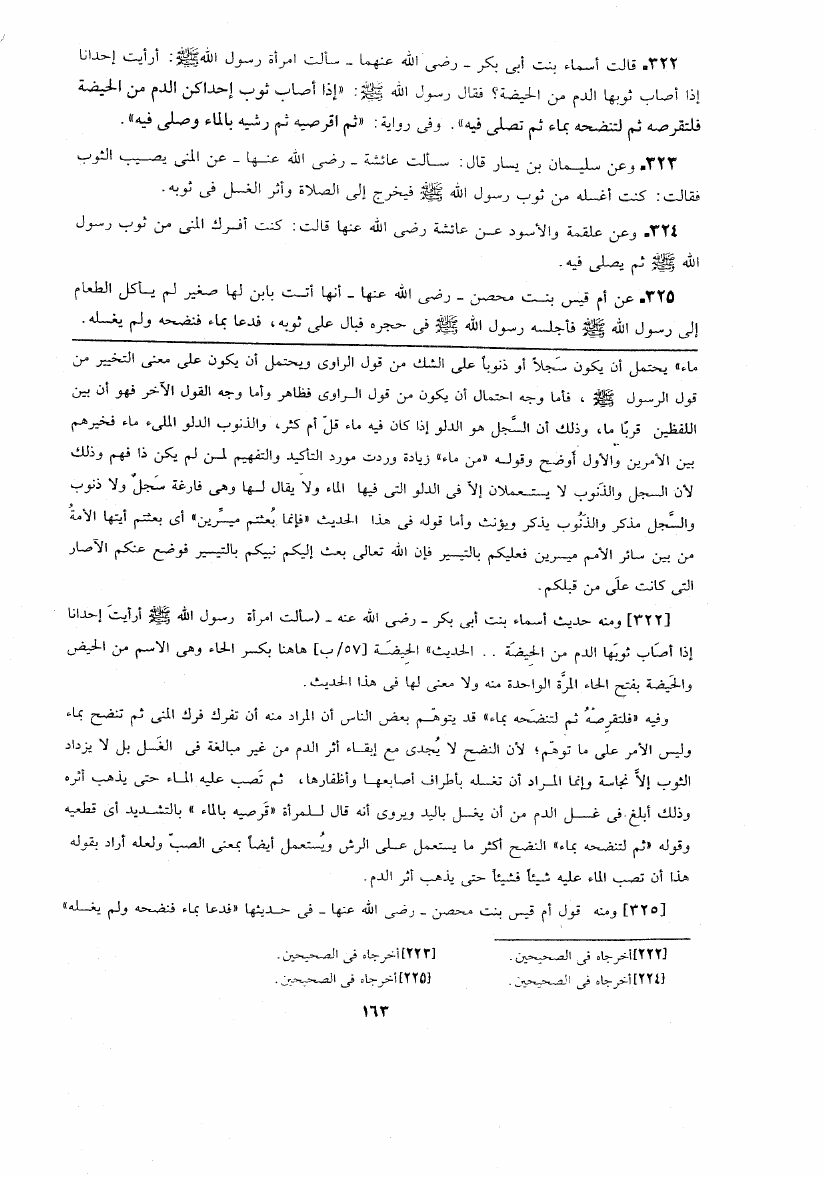 ٣٢٢ـ قالت أسماء بنت أبى بكر ـ رضى الله عنهما ـ سألت امرأة رسول الله ﷺ: أرأيت إحدانا
إذا أصاب ثوبها الدم من الحيضة؟ فقال رسول الله ﷺ: «إذا أصاب ثوب إحداكن الدم من الحيضة
فلتقرصه ثم لتنضحه بماء ثم تصلى فيه». وفى رواية: «ثم اقرصيه ثم رشيه بالماء وصلى فيه».
٣٢٣ـ وعن سليمان بن يسار قال: سألت عائشة ـ رضى الله عنها ـ عن المنى يصيب الثوب
فقالت: كنت أغسله من ثوب رسول الله ﷺ فيخرج إلى الصلاة وأثر الغسل فى ثوبه.
٣٢٤ـ وعن علقمة والأسود عن عائشة رضى الله عنها قالت: كنت أفرك المنى من ثوب رسول
الله ﷺ ثم يصلى فيه.
٣٢٥ـ عن أم قيس بنت محصن ـ رضى الله عنها ـ أنها أتت بابن لها صغير لم يأكل الطعام
إلى رسول الله ﷺ فأجلسه رسول الله ﷺ فى حجره فبال على ثوبه، فدعا بماء فنضحه ولم يغسله.
ماء» يحتمل أن يكون سَجلاً أو ذنوباً على الشك من قول الراوى ويحتمل أن يكون على معنى التخيير من
قول الرسول ﷺ ، فأما وجه احتمال أن يكون من قول الراوى فظاهر وأما وجه القول الآخر فهو أن بين
اللفظين قربًا ما، وذلك أن السَّجل هو الدلو إذا كان فيه ماء قلّ أم كثر، والذنوب الدلو المليء ماء فخيرهم
بين الأمرين والأول أوضح وقوله «من ماء» زيادة وردت مورد التأكيد والتفهيم لمن لم يكن ذا فهم وذلك
لأن السجل والذنوب لا يستعملان إلاّ فى الدلو التى فيها الماء ولا يقال لها وهى فارغة سَجلٌ ولا ذنوب
والسَّجل مذكر والذَنُوب يذكر ويؤنث وأما قوله فى هذا الحديث «فإنما بُعثتم ميسِّرين» أى بعثتم أيتها الأمةُ
من بين سائر الأمم ميسرين فعليكم بالتيسير فإن الله تعالى بعث إليكم نبيكم بالتيسير فوضع عنكم الآصار
التى كانت علَى من قبلكم.
[٣٢٢] ومنه حديث أسماء بنت أبى بكر ـ رضى الله عنه ـ (سألت امرأة رسول الله ﷺ أرأيتَ إحدانا
إذا أصَاب ثوبَها الدم من الحِيضَة . . الحديث» الحِيضَة [٥٧/ب] هاهنا بكسر الحاء وهى الاسم من الحيض
والحَيضة بفتح الحاء المرَّة الواحدة منه ولا معنى لها فى هذا الحديث.
وفيه «فلتقرصْهُ ثم لتنضَحه بماء» قد يتوهّم بعض الناس أن المراد منه أن تفرك فرك المنى ثم تنضح بماء
وليس الأمر على ما توهّم؛ لأن النضح لا يُجدى مع إبقاء أثر الدم من غير مبالغة فى الغَسل بل لا يزداد
الثوب إلاَّ نجاسة وإنما المراد أن تغسله بأطراف أصابعها وأظفارها، ثم تَصب عليه الماء حتى يذهب أثره
وذلك أبلغ فى غسل الدم من أن يغسل باليد ويروى أنه قال للمرأة «قَرصيه بالماء » بالتشديد أى قطعيه
وقوله «ثم لتنضحه بماء» النضح أكثر ما يستعمل على الرش ويُستعمل أيضاً بمعنى الصبّ ولعله أراد بقوله
هذا أن تصب الماء عليه شيئاً فشيئاً حتى يذهب أثر الدم.
[٣٢٥] ومنه قول أم قيس بنت محصن ـ رضى الله عنها ـ فى حديثها «فدعا بماء فنضحه ولم يغسله»
[٢٢٢]أخرجاه فى الصحيحين. [٢٢٣]أخرجاه فى الصحيحين.
[٢٢٤]أخرجاه فى الصحيحين. [٢٢٥]أخرجاه فى الصحيحين.
١٦٣